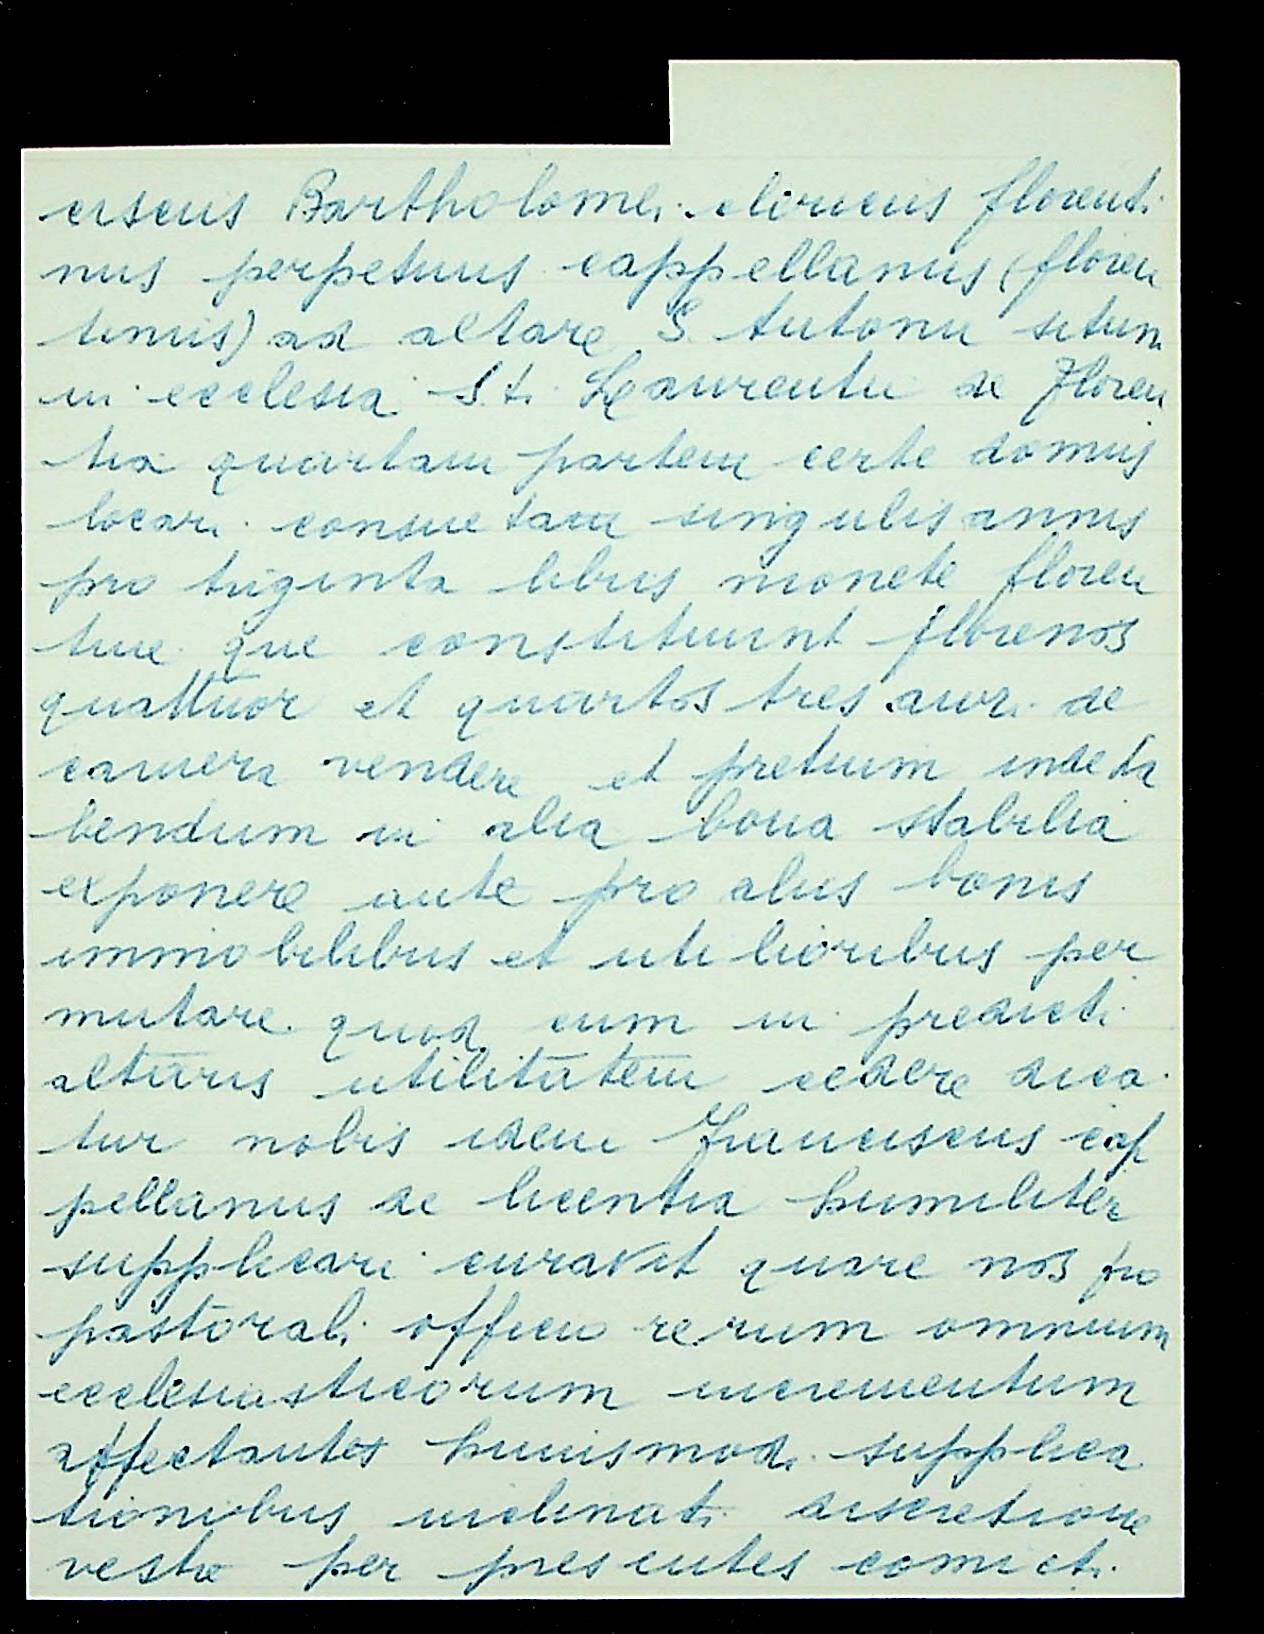 ciscus Bartholomei clericus florenti
nus perpetuus cappellanus (floren
tinus) ad altare S. Antonii situm
in ecclesia Sti. Laurentii de Floren
tia quartam partem certe domus
locari consuetam singulis annis
pro triginta libris monete floren
tine que constituunt florenos
quattuor et quartos tres auri de
camera vendere et pretium inde ha
bendum in alia bona stabilia
exponere aute pro aliis bonis
immobilibus et utilioribus per
mutare quod cum in predicti
altaris utilitatem cedere dica
tur nobis idem Franciscus cap
pellanus de licentia humiliter
supplicari curavit quare nos pro
pastorali officio rerum omnium
ecclesiasticorum incrementum
affectantes huiusmodi supplica
tionibus inclinati discretione
vestre per presentes comicti